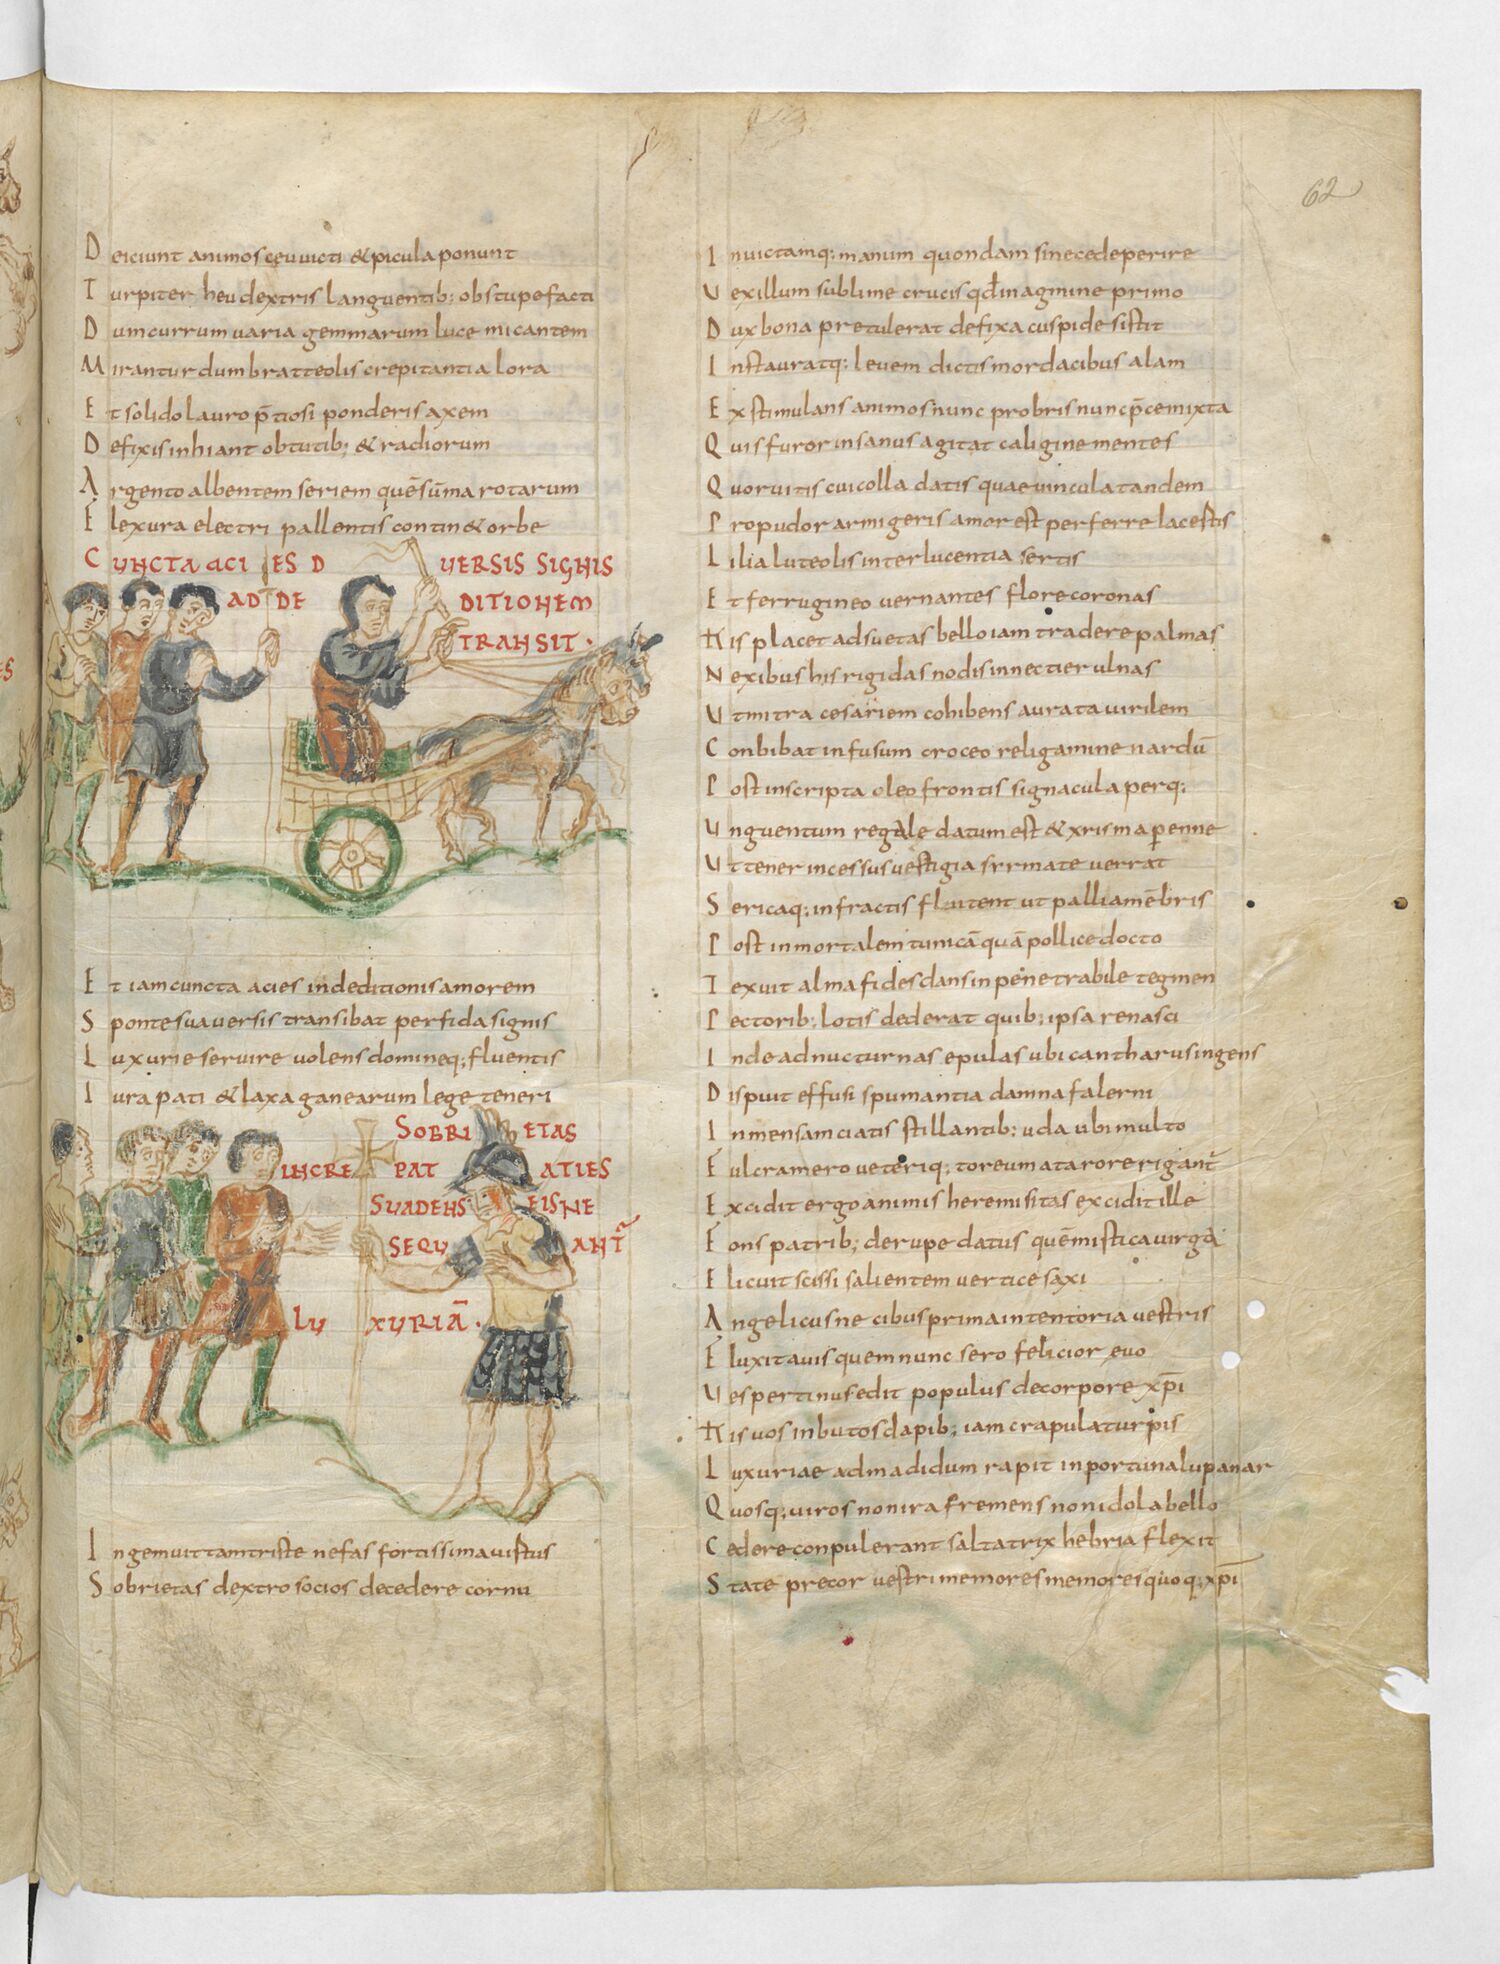 62
Deiciunt animos ceu uicti & picula ponunt
Turpiter heu dextris languentib; obstupefacti
Dum currum uaria gemmarum luce micantem
Mirantur dum bratteolis crepitantia lora
Et solido lauro p̄tiosi ponderis axem
Defixis inhiant obtutib; & radiorum
Argento albentem seriem quē sūma rotarum
Flexura electri pallentis contin& orbe
CUNCTA ACIES D UERSIS SIGNIS
AD DE DITIONEM
TRANSIT·
Et iam cuncta acies in deditionis amorem
Sponte sua uersis transibat perfida signis
Luxurie seruire uolens domineq; fluentis
Iura pati & laxa ganearum lege teneri
SOBRIETAS
INCREPAT ATIES
SUADENS EIS NE
SEQUANT̄
LUXURIĀ·
Ingemuit tam triste nefas fortissima uistus
Sobrietas dextro socios decedere cornu
Inuictamq; manum quondam sine cede perire
Uexillum sublime crucis qđ in agmine primo
Dux bona pretulerat defixa cuspide sistit
Instauratq; leuem dictis mordacibus alam
Exstimulans animos nunc probris nunc p̄ce mixta
Quis furor insanus agitat caligine mentes
Quo ruitis cui colla datis quae uincula tandem
Pro pudor armigeris amor est perferre lacestis
Lilia luteolis interlucentia sertis
Et ferrugineo uernantes flore coronas
His placet adsuetas bello iam tradere palmas
Nexibus his rigidas nodis innectier ulnas
Ut mitra cesariem cohibens aurata uirilem
Conbibat infusum croceo religamine nardū
Post inscripta oleo frontis signacula per q;
Unguentum regale datum est & xrisma p̄enne
Ut tener incessus uestigia srrmate uerrat
Sericaq; infractis fluitent ut pallia mēbris
Post inmortalem tunicā quā pollice docto
Texuit alma fides dans inpenetrabile tegmen
Pectorib; lotis dederat quib; ipsa renasci
Inde ad nucturnas epulas ubi cantharus ingens
Dispuit effusi spumantia damna falerni
In mensam ciatis stillantib; uda ubi multo
Fulcra mero ueteriq; toreumata rore rigant̄
Excidit ergo animis heremi sitas excidit ille
Fons patrib; de rupe datus quē mistica uirga
Elicuit scissi salientem uertice saxi
Angelicusne cibus prima in tentoria uestris
Fluxit auis quem nunc sero felicior euo
Uespertinus edit populus de corpore xp̄i
His uos inbutos dapib; iam crapula turpis
Luxuriae ad madidum rapit inportuna lupanar
Quosq; uiros non ira fremens non idola bello
Cedere conpulerant saltatrix hebria flexit
State precor uestri memores memores quoq; xp̄i